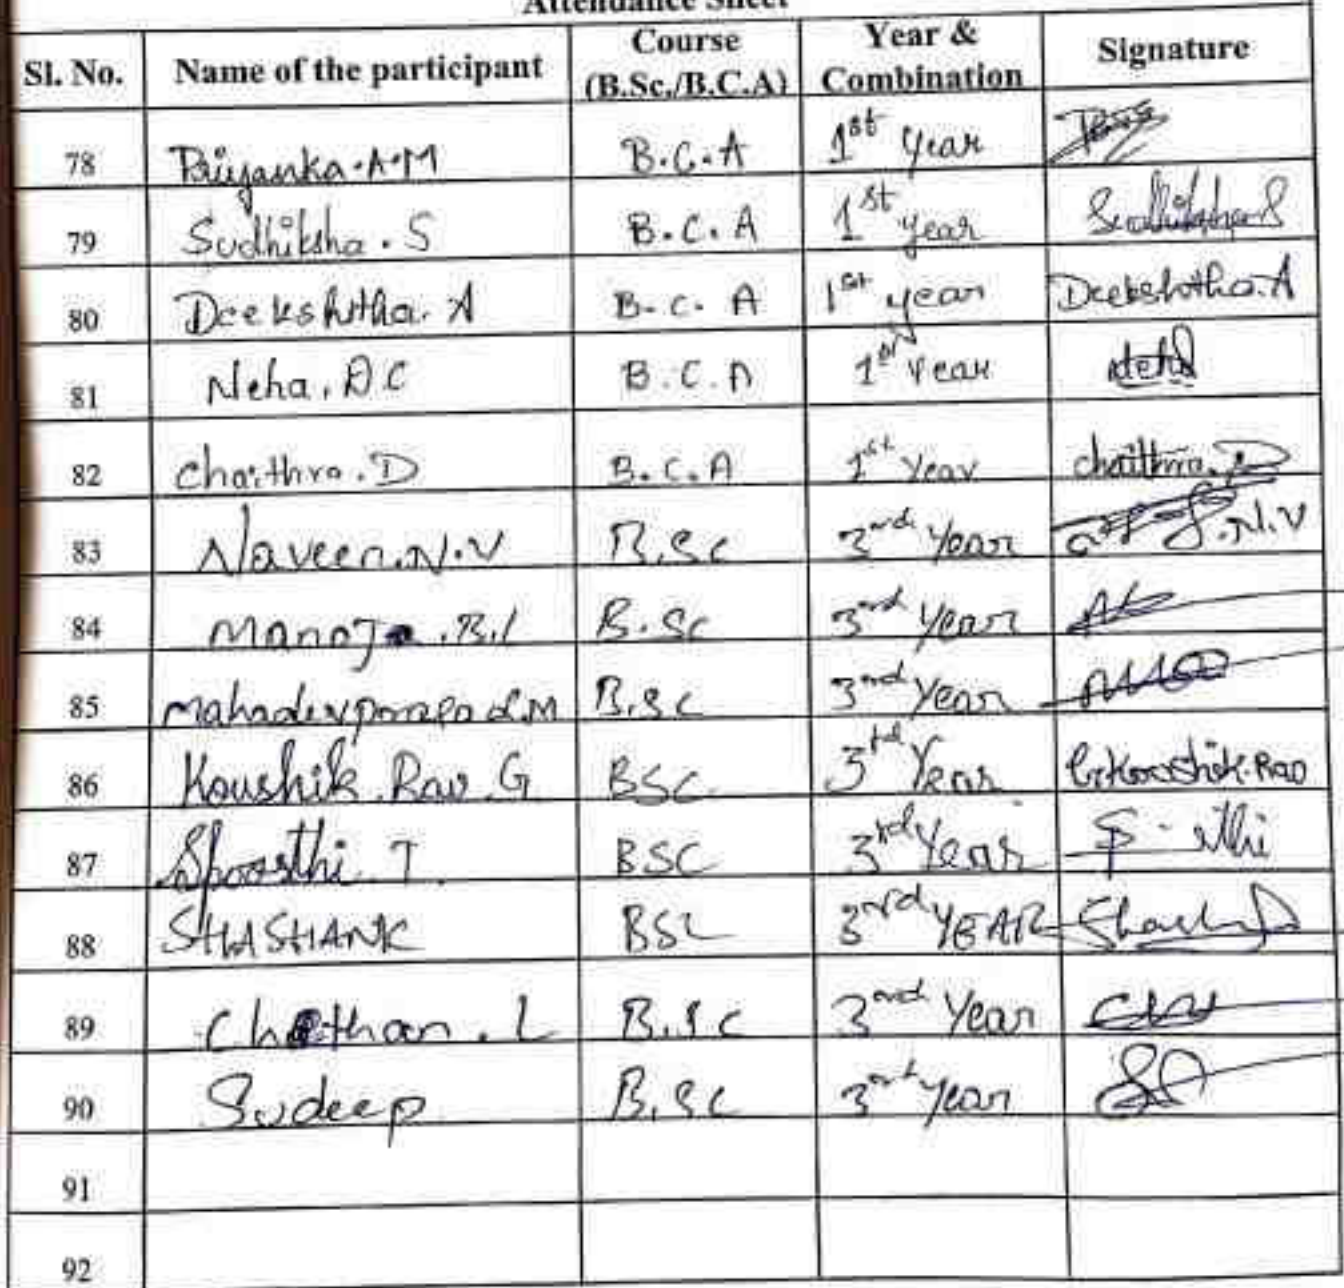 Attendance Sheet
Sl. No. Name of the participant Course (B.Sc./B.C.A) Year & Combination Signature
78 Priyanka.A.M B.C.A 1st Year
79 Sudhiksha.S B.C.A 1st year Sudhiksha S
80 Deekshitha.A B.C.A 1st year Deekshitha.A
81 Neha.D C B.C.A 1st Year Neha
82 Chaithra.D B.C.A 1st Year chaithra.D
83 Naveen.N.V B.Sc 3rd Year .N.V
84 B.Sc 3rd Year
85 B.Sc 3rd Year
86 Koushik Rao G BSC 3rd Year G.Koushik.Rao
87 Spoorthi T. BSC 3rd Year
88 SHASHANK BSC 3rd YEAR
89 Chethan.L B.Sc 3rd Year
90 Sudeep B.Sc 3rd Year
91
92